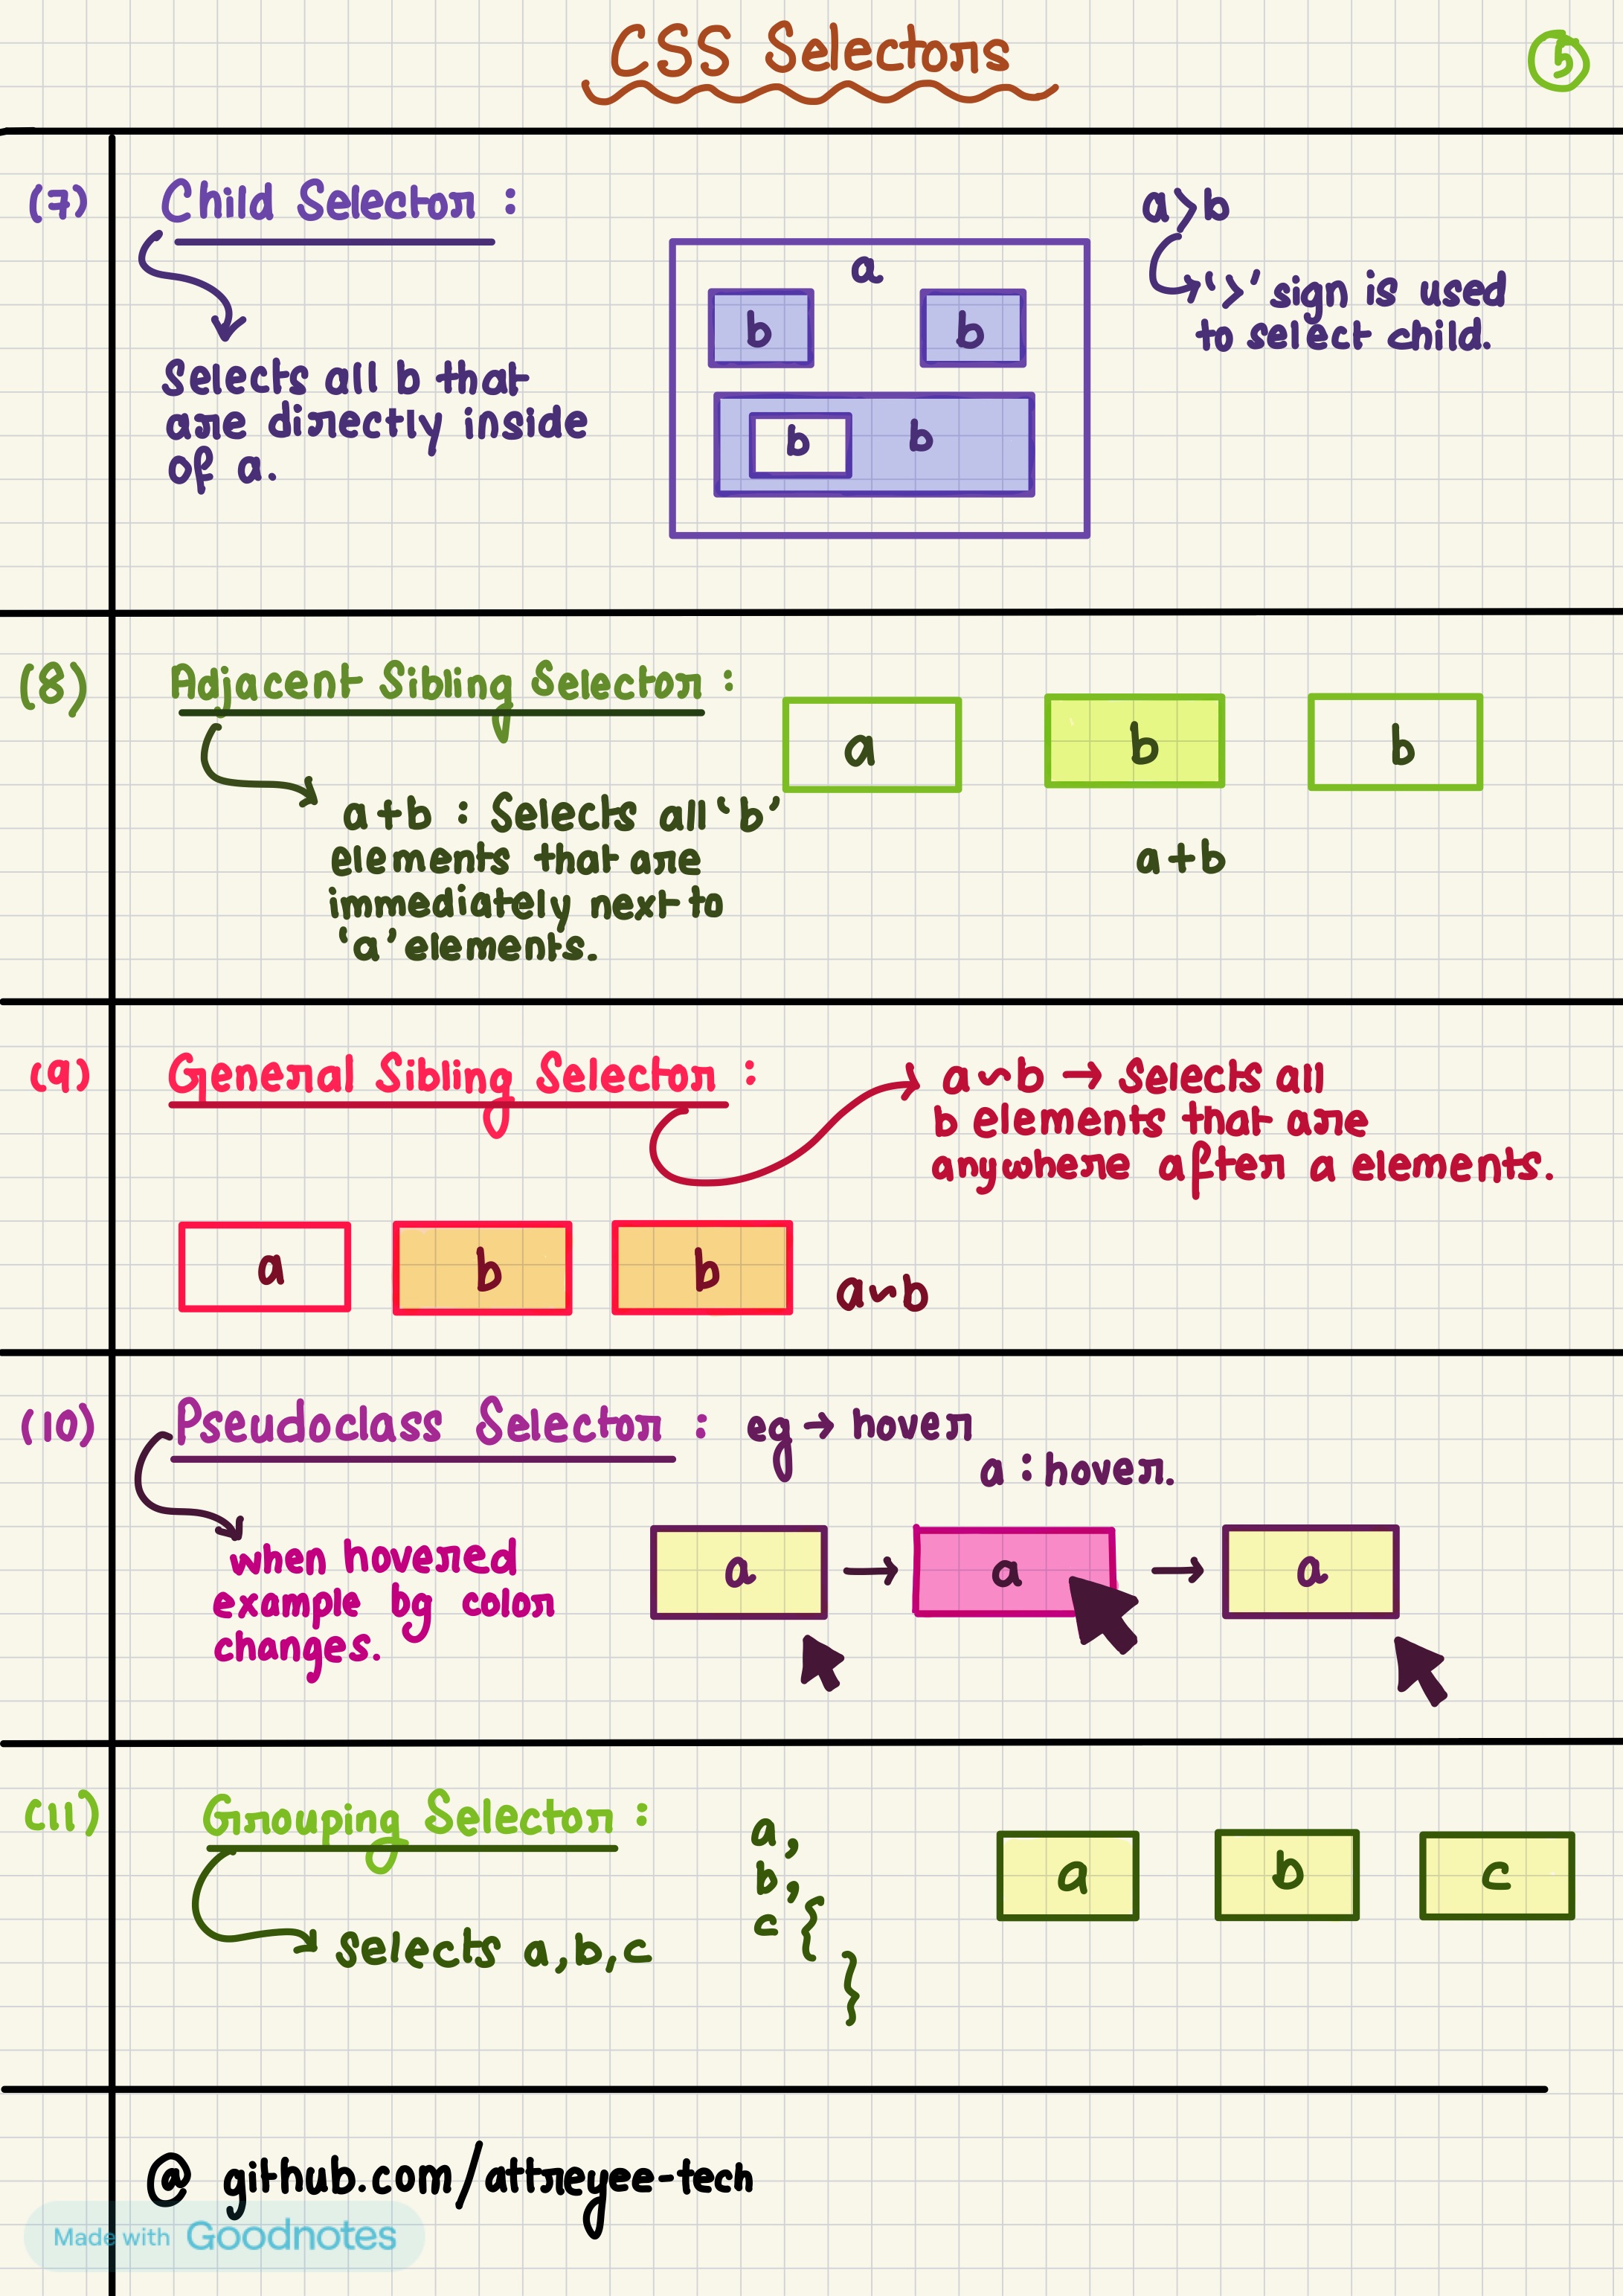 CSS Selectors
5
(7)
Child Selector :
Selects all b that
are directly inside
of a.
a
b
b
b
b
a>b
'>' sign is used
to select child.
(8)
Adjacent Sibling Selector :
a+b : Selects all 'b'
elements that are
immediately next to
'a' elements.
a
b
b
a+b
(9)
General Sibling Selector :
a~b → Selects all
b elements that are
anywhere after a elements.
a
b
b
a~b
(10)
Pseudoclass Selector : eg → hover
a : hover.
when hovered
example bg color
changes.
a
a
a
(11)
Grouping Selector :
Selects a,b,c
a,
b,
c {
}
a
b
c
@ github.com/attreyee-tech
Made with Goodnotes